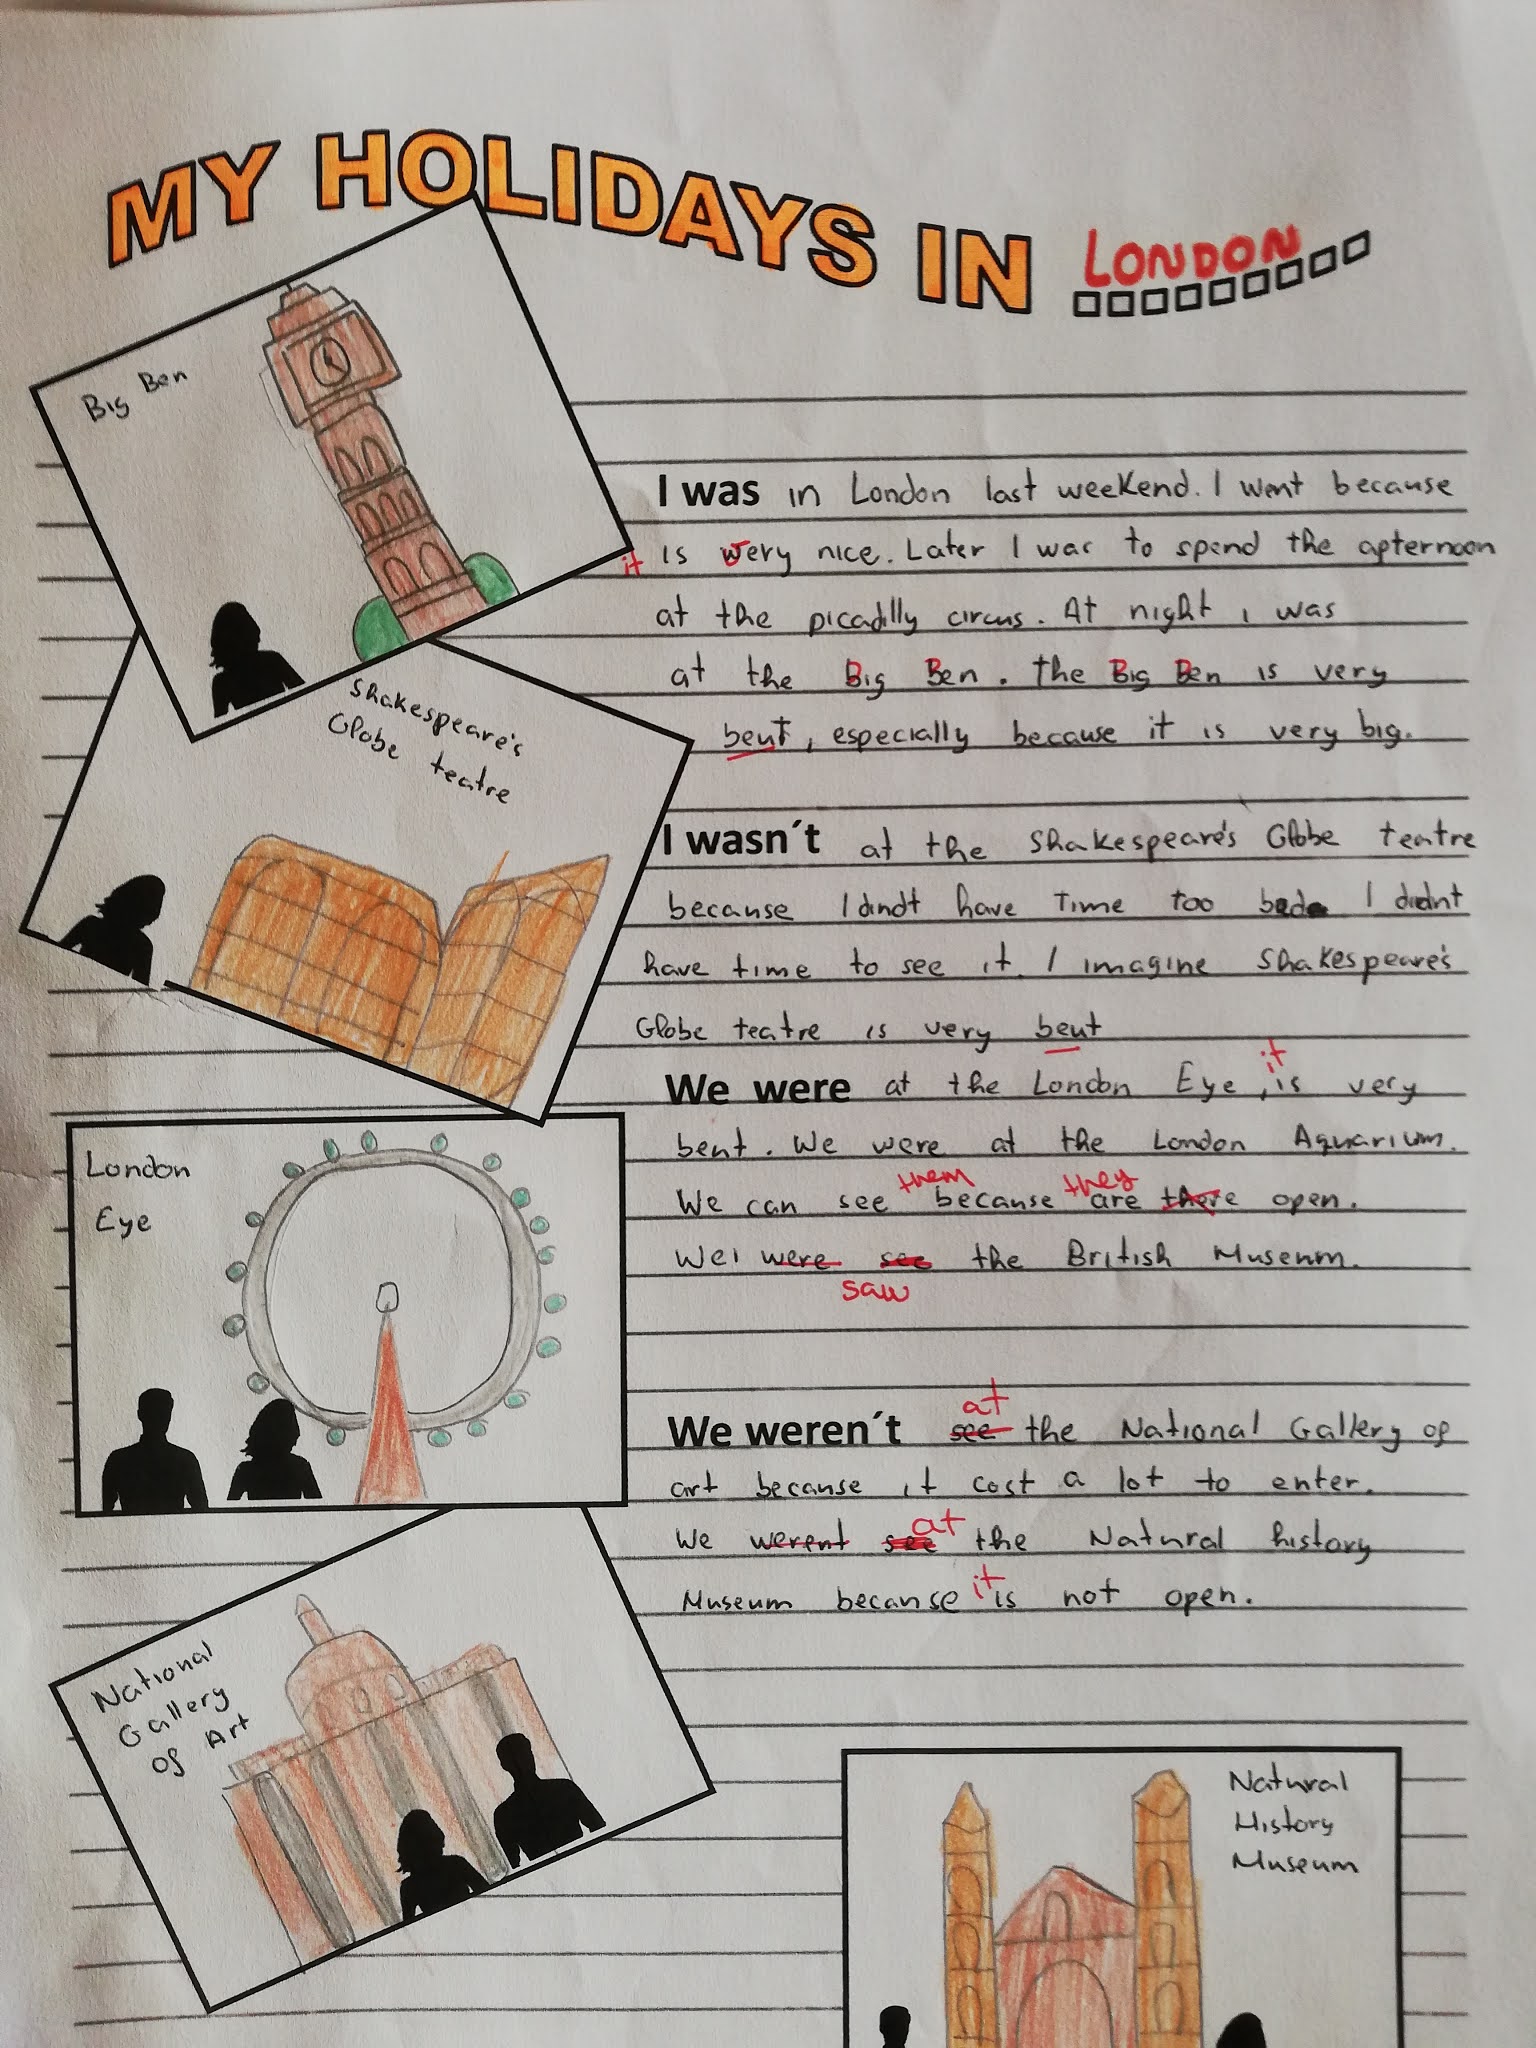 MY HOLIDAYS IN LONDON
Big Ben
I was in London last weekend. I went because
it is very nice. Later I was to spend the apternoon
at the picadilly circus. At night i was
at the Big Ben. the Big Ben is very
beut, especially because it is very big.
Shakespeare's
Globe teatre
I wasn´t at the Shakespeare's Globe teatre
because I dindt have time too bad I didnt
have time to see it. I imagine Shakespeare's
Globe teatre is very beut
London
Eye
We were at the London Eye, it is very
beut. We were at the London Aquarium.
We can see them because they are there open.
We were see the British Museum.
saw
National
Gallery
of Art
at
We weren´t see the National Gallery of
art because it cost a lot to enter.
We werent see at the Natural history
Museum because it is not open.
Natural
History
Museum